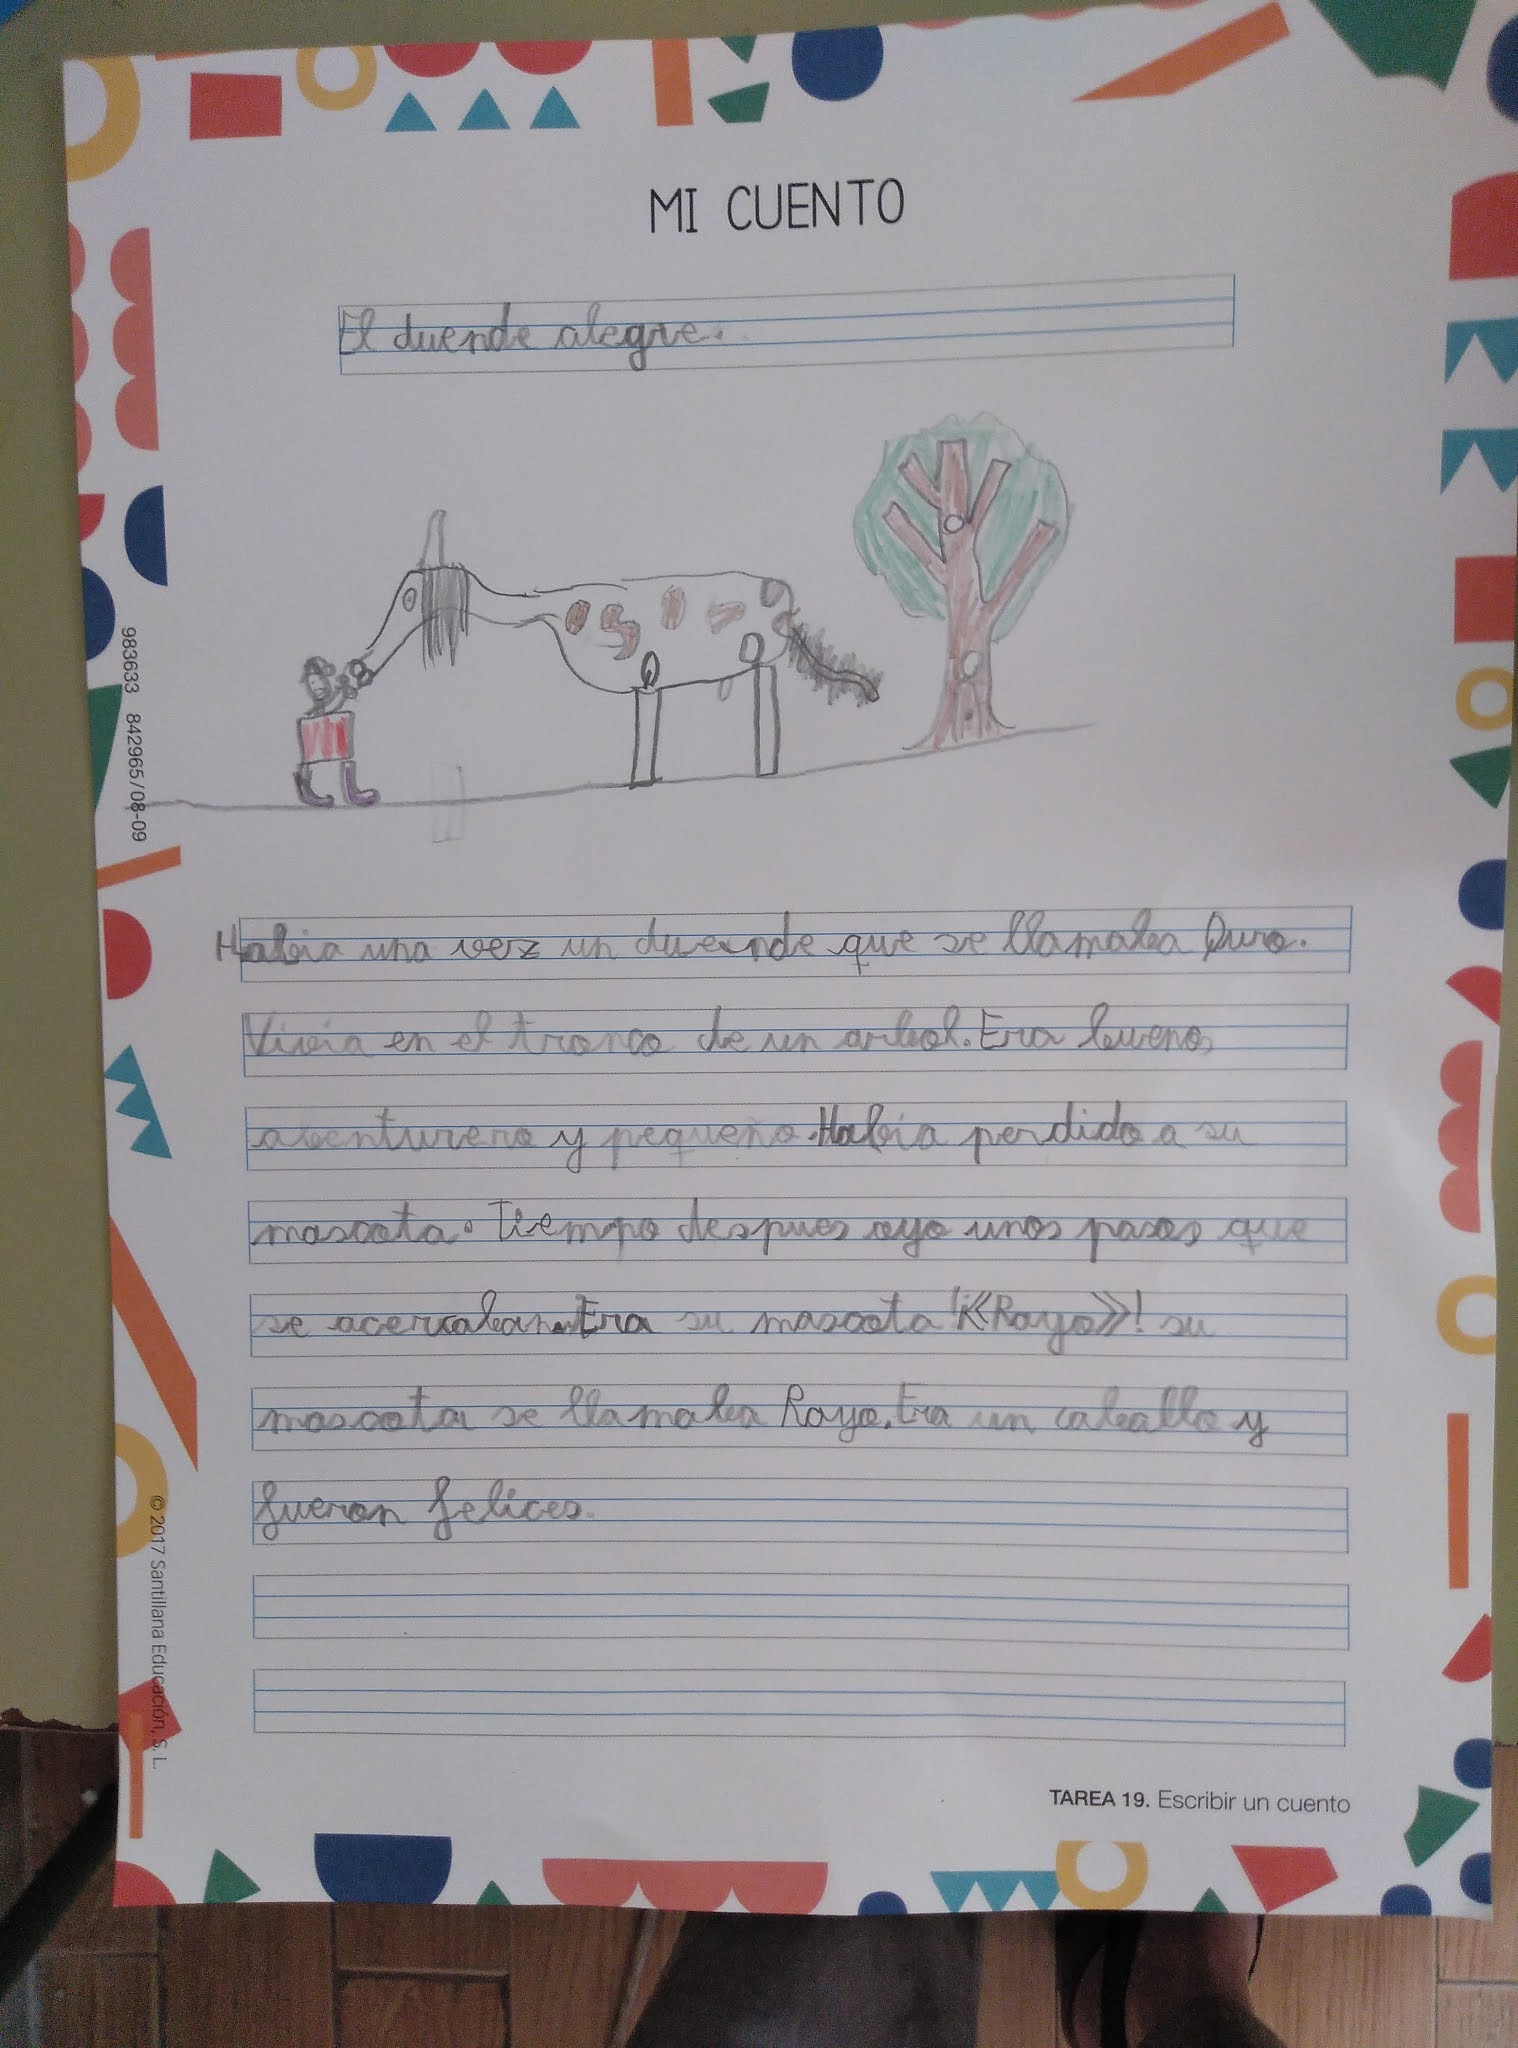 MI CUENTO
El duende alegre.
Habia una vez un duende que se llamaba Duro.
Vivia en el tronco de un arbol. Era bueno,
abenturero y pequeño. Había perdido a su
mascota. Tiempo despues oyo unos pasos que
se acercaban. Era su mascota ¡«Rayo»! su
mascota se llamaba Rayo. Era un caballo y
fueron felices.
TAREA 19. Escribir un cuento
983633 842965/08-09
© 2017 Santillana Educación, S. L.